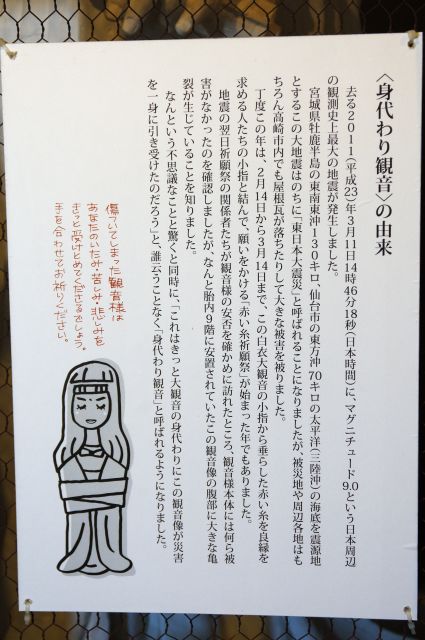 〈身代わり観音〉の由来
去る2011(平成23)年3月11日14時46分18秒(日本時間)に、マグニチュード9.0という日本周辺
の観測史上最大の地震が発生しました。
宮城県牡鹿半島の東南東沖130キロ、仙台市の東方沖70キロの太平洋(三陸沖)の海底を震源地
とするこの大地震はのちに「東日本大震災」と呼ばれることになりましたが、被災地や周辺各地はも
ちろん高崎市内でも屋根瓦が落ちたりして大きな被害を被りました。
丁度この年は、2月14日から3月14日まで、この白衣大観音の小指から垂らした赤い糸を良縁を
求める人たちの小指と結んで、願いをかける「赤い糸祈願祭」が始まった年でもありました。
地震の翌日祈願祭の関係者たちが観音様の安否を確かめに訪れたところ、観音様本体には何ら被
害がなかったのを確認しましたが、なんと胎内9階に安置されていたこの観音像の腹部に大きな亀
裂が生じていることを知りました。
なんという不思議なことと驚くと同時に、「これはきっと大観音の身代わりにこの観音像が災害
を一身に引き受けたのだろう」と、誰云うことなく「身代わり観音」と呼ばれるようになりました。
傷ついてしまった観音様は
あなたのいたみ・苦しみ・悲しみを
きっと受けとめてくださるでしょう。
手を合わせてお祈りください。